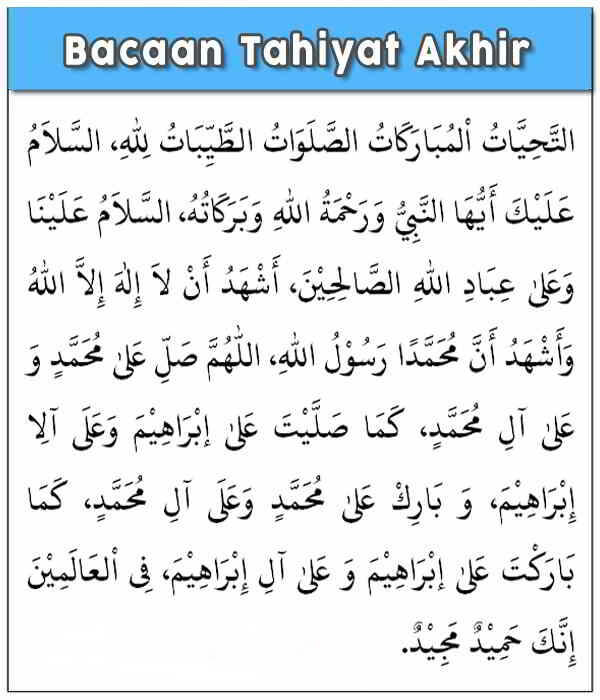 Bacaan Tahiyat Akhir
التَّحِيَّاتُ اْلمُبَارَكَاتُ الصَّلَوَاتُ الطَّيِّبَاتُ لِلّٰهِ، السَّلاَمُ
عَلَيْكَ أَيُّهَا النَّبِيُّ وَرَحْمَةُ اللهِ وَبَرَكَاتُهُ، السَّلاَمُ عَلَيْنَا
وَعَلىٰ عِبَادِ اللهِ الصَّالِحِيْنَ، أَشْهَدُ أَنْ لاَ إِلٰهَ إِلاَّ اللهُ
وَأَشْهَدُ أَنَّ مُحَمَّدًا رَسُوْلُ اللهِ، اللّٰهُمَّ صَلِّ عَلىٰ مُحَمَّدٍ وَ
عَلىٰ آلِ مُحَمَّدٍ، كَمَا صَلَّيْتَ عَلىٰ إبْرَاهِيْمَ وَعَلَى آلِا
إِبْرَاهِيْمَ، وَ بَارِكْ عَلىٰ مُحَمَّدٍ وَعَلَى آلِ مُحَمَّدٍ، كَمَا
بَارَكْتَ عَلىٰ إبْرَاهِيْمَ وَ عَلىٰ آلِ إِبْرَاهِيْمَ، فِى اْلعَالَمِيْنَ
إِنَّكَ حَمِيْدٌ مَجِيْدٌ.